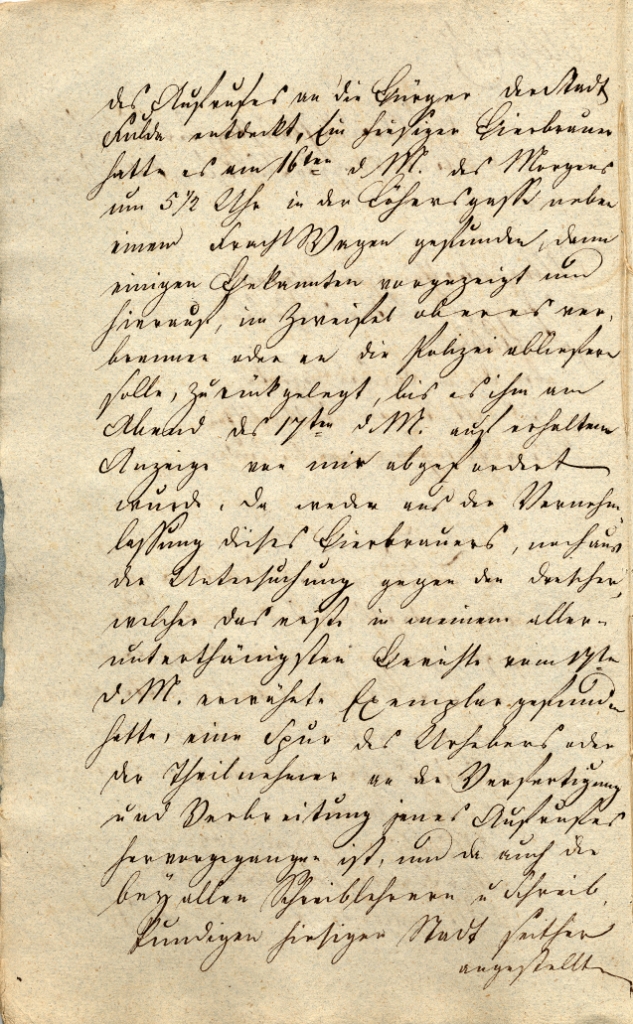 des Aufrufes an die Bürger der Stadt
Fulda entdeckt. Ein hiesiger Bierbrauer
hatte es am 16ten d. M. des Morgens
um 5 1/2 Uhr in der Löhersgasse neben
einem Fracht Wagen gefunden, dann
einigen Bekannten vorgezeigt und
hierauf, im Zweifel ob er es ver-
brennen oder an die Polizei abliefern
solle, zurückgelegt, bis es ihm am
Abend des 17ten d. M. auf erhaltene
Anzeige von mir abgefordert
wurde. Da weder aus der Vernehm-
lassung dieses Bierbrauers, noch aus
der Untersuchung gegen den Drescher,
welcher das erste in meinem aller-
unterthänigsten Berichte vom 17ten
d. M. erwähnte Exemplar gefunden
hatte, eine Spur des Urhebers oder
der Theilnehmer an der Verfertigung
und Verbreitung jenes Aufrufes
hervorgegangen ist, und da auch die
bey allen Schreiblehrern u Schreib-
kundigen hiesiger Stadt seither
angestellte